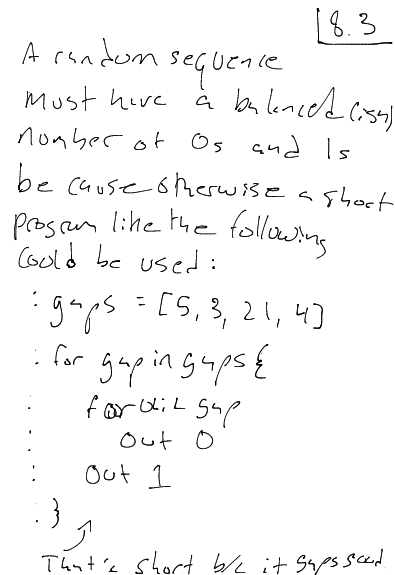 18.3
A random sequence
must have a balanced (ish)
number of 0s and 1s
because otherwise a short
program like the following
could be used:
: gaps = [5, 3, 21, 4]
: for gap in gaps {
: for 0 i < gap
: out 0
: out 1
: }
That's short b/c it gaps